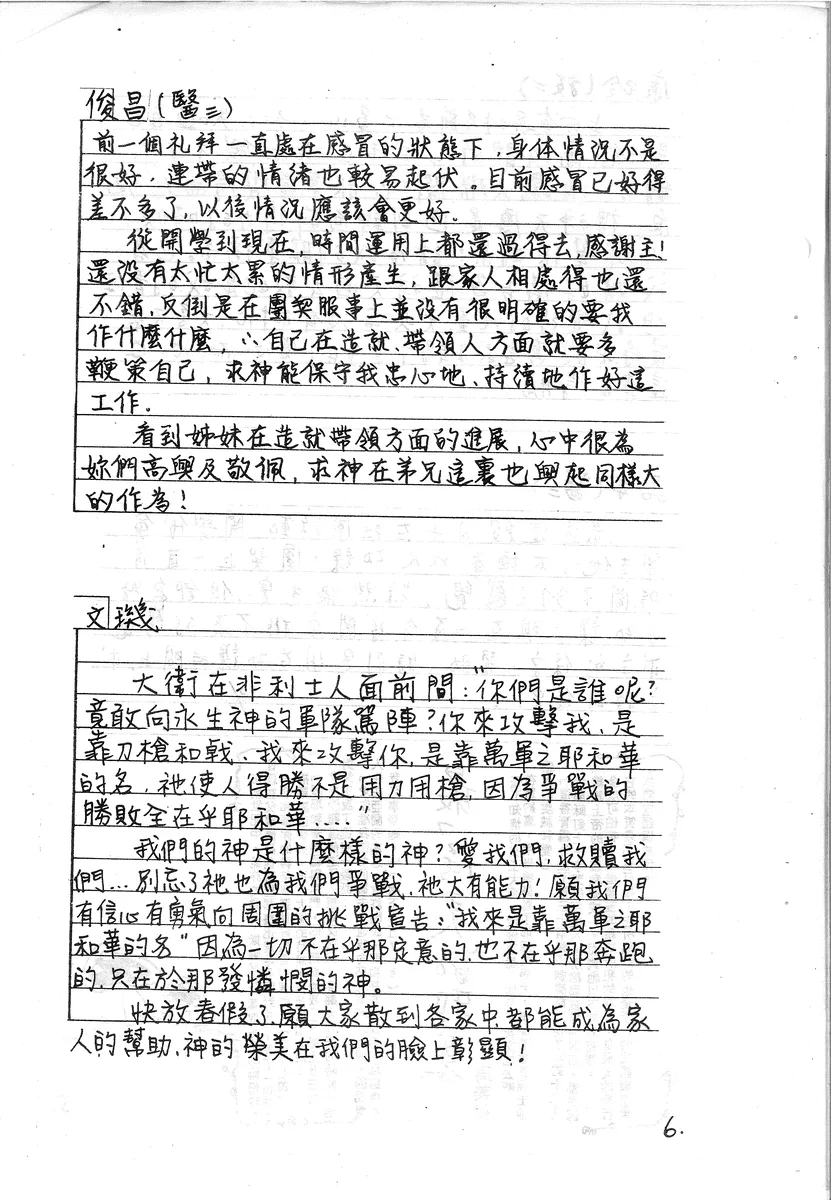 俊昌(醫三)
前一個礼拜一直處在感冒的狀態下，身体情況不是
很好，連帶的情緒也較易起伏。目前感冒已好得
差不多了，以後情況應該會更好.
從開學到現在，時間運用上都還過得去，感謝主!
還没有太忙太累的情形產生，跟家人相處得也還
不錯，反倒是在團契服事上並没有很明確的要我
作什麼什麼，∴自己在造就、帶領人方面就要多
鞭策自己，求神能保守我忠心地、持續地作好這
工作.
看到姊妹在造就帶領方面的進展，心中很為
妳們高興及敬佩，求神在弟兄這裏也興起同樣大
的作為!
文璣
大衛在非利士人面前問："你們是誰呢?
竟敢向永生神的軍隊罵陣?你來攻擊我、是
靠刀槍和戟、我來攻擊你，是靠萬軍之耶和華
的名，祂使人得勝不是用刀用槍，因為爭戰的
勝敗全在乎耶和華....."
我們的神是什麼樣的神?愛我們，救贖我
們...別忘了祂也為我們爭戰，祂大有能力!願我們
有信心有勇氣向周圍的挑戰宣告："我來是靠萬軍之耶
和華的名"因為一切不在乎那定意的，也不在乎那奔跑
的，只在於那發憐憫的神。
快放春假了，願大家散到各家中，都能成為家
人的幫助，神的榮美在我們的臉上彰顯!
6.